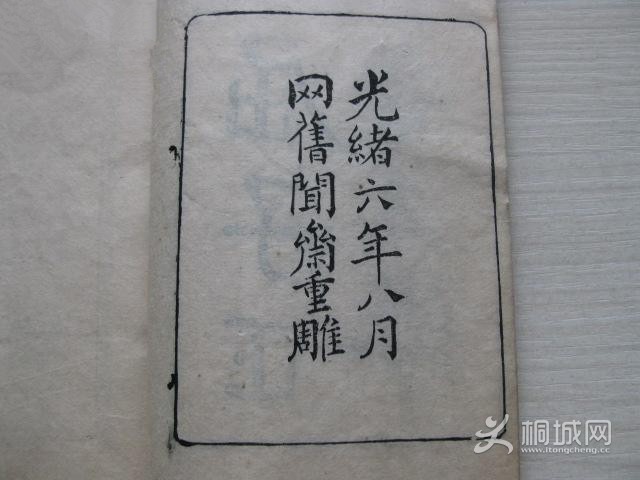 光緒六年八月
网舊聞齋重雕
桐城网
www.itongcheng.cc